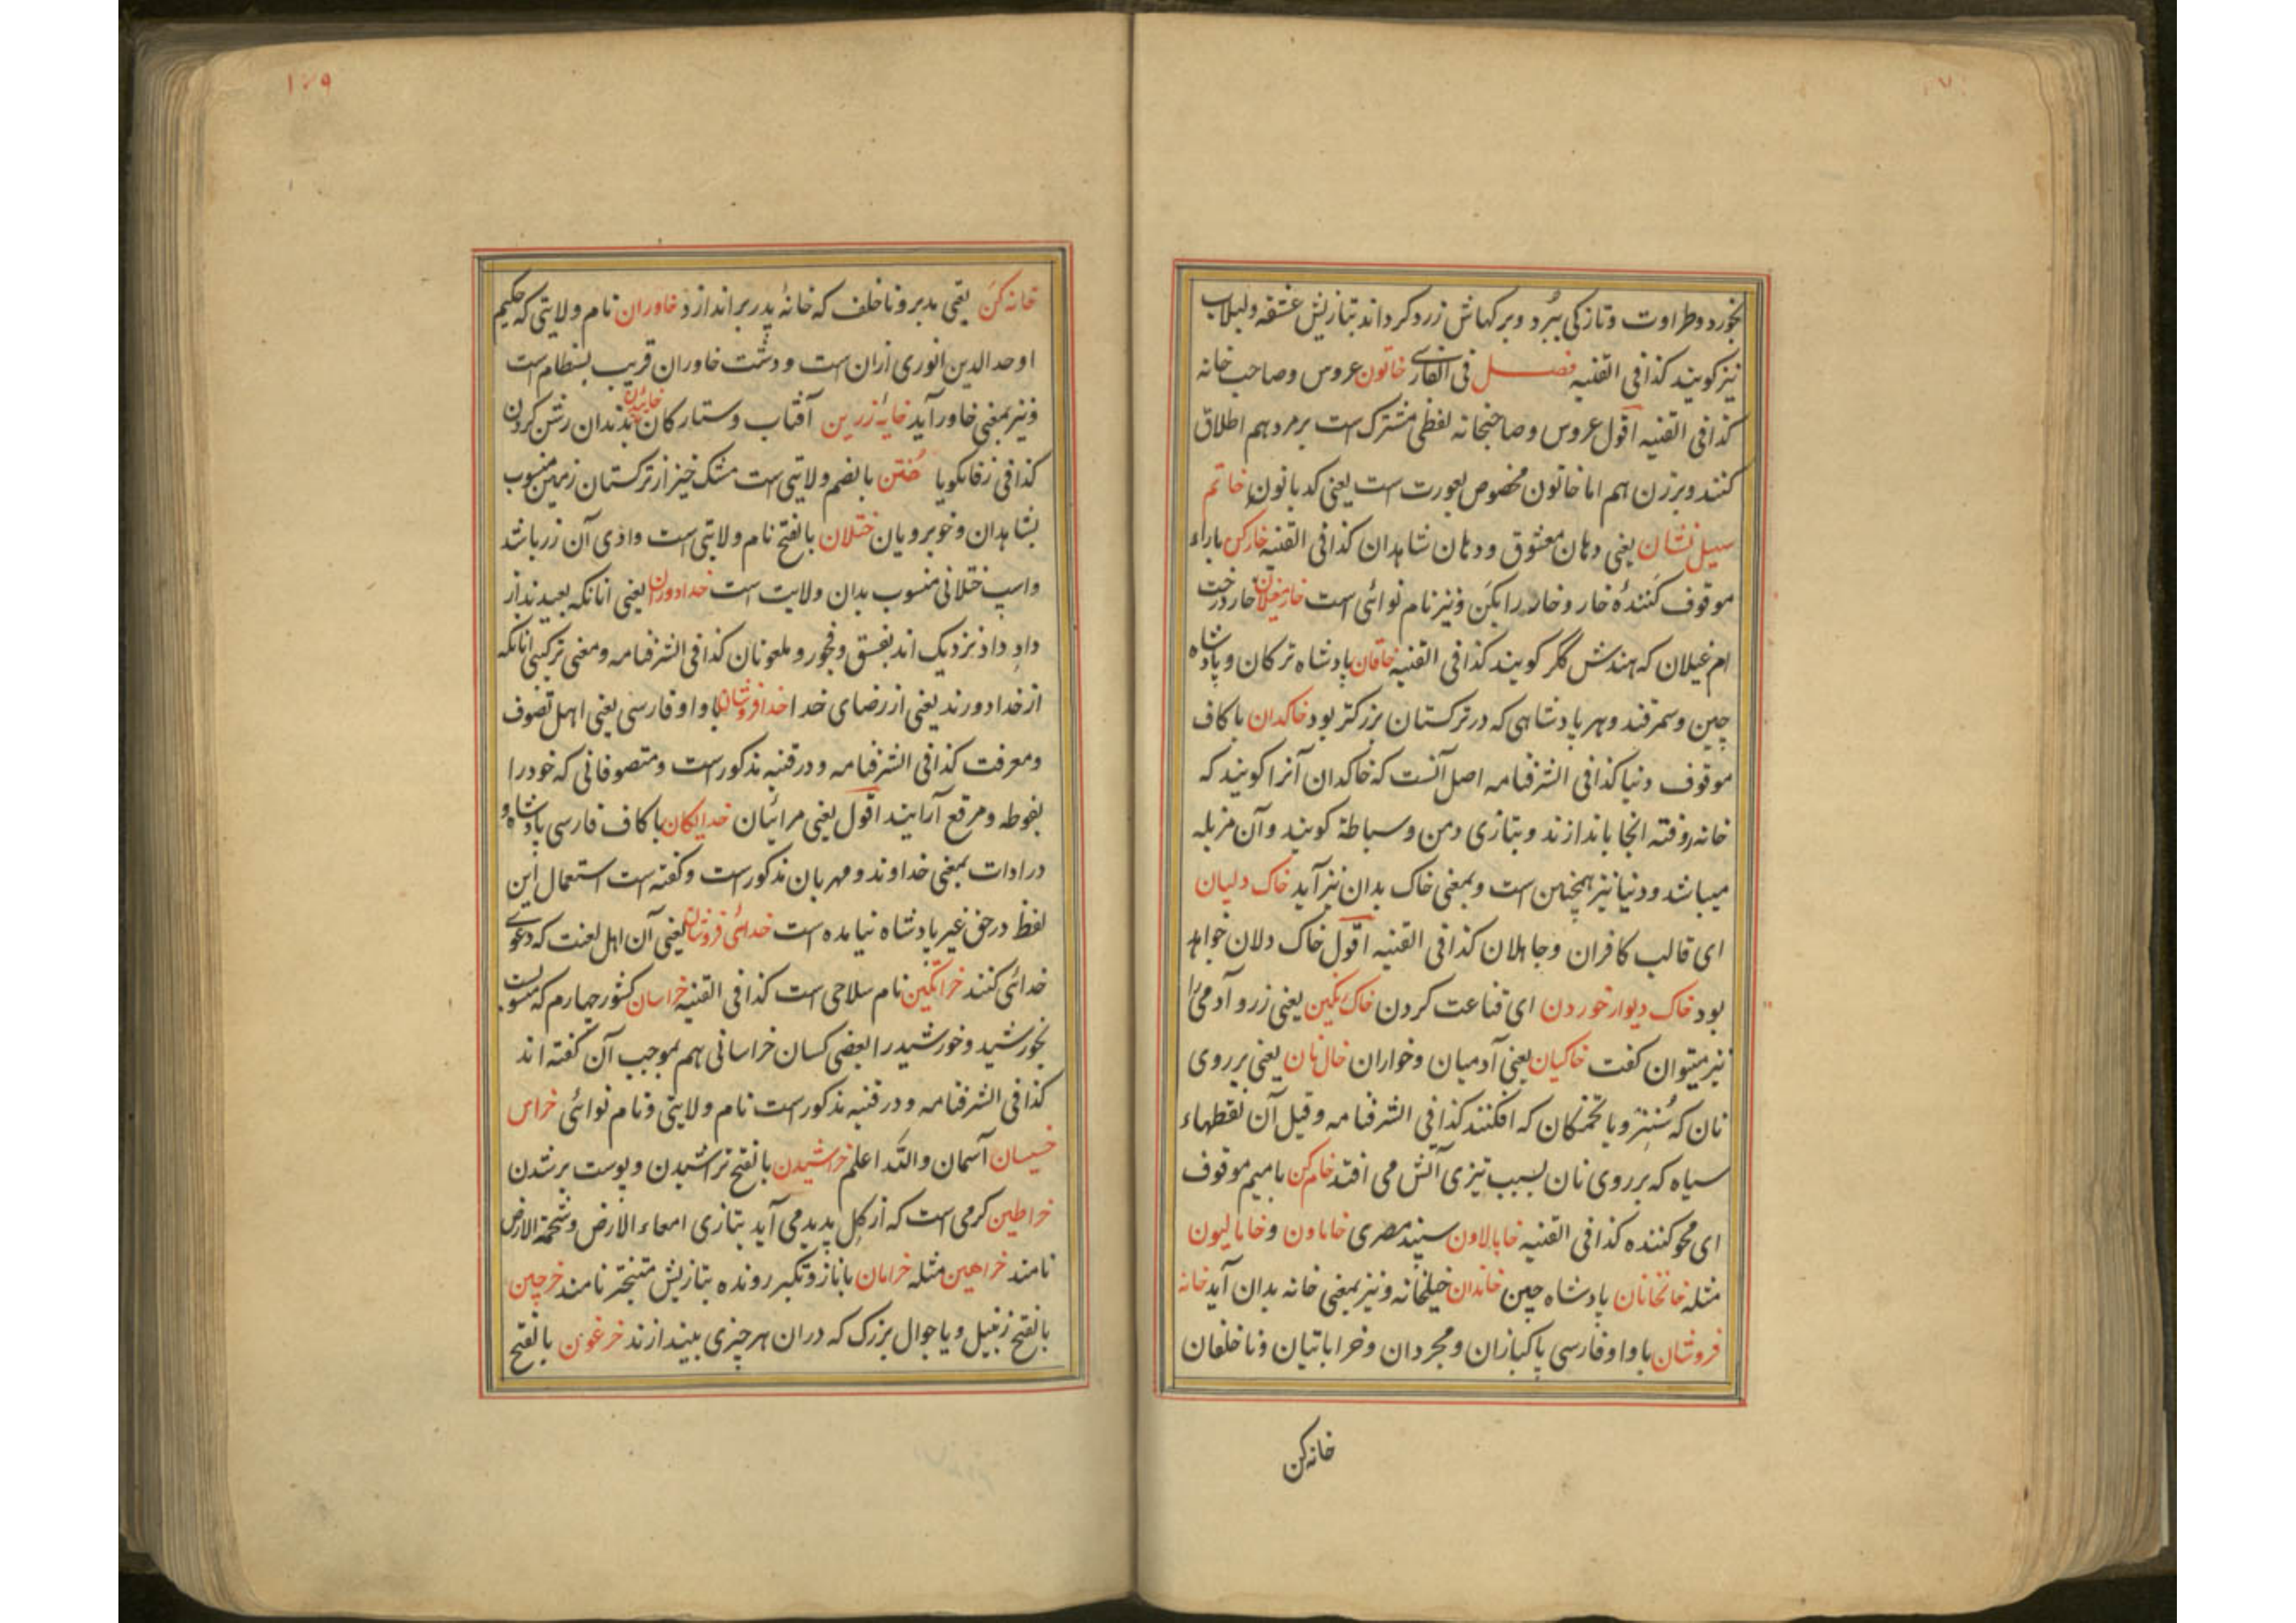 بخورد و طراوت و تازکی ببُرد و برکهاش زرد کرداند بتازیش عشقه و لبلاب
نیز کویند کذا فی القنیه فصل فی الفارسی خاتون عروس و صاحب خانه
کذا فی القنیه اقول عروس و صاحبخانه لفظی مشترک است بر مرد هم اطلاق
کنند و بر زن هم اما خاتون مخصوص بعورت است یعنی کدبانون خاتم
سهیل نشان یعنی دهان معشوق و دهان شاهدان کذا فی القنیه خارکن باراء
موقوف کَنندهٔ خار و خار را بکَن و نیز نام نوائی است خار مغیلان خار درخت
ام غیلان که هندش کگر کویند کذا فی القنیه خاقان پادشاه ترکان و پادشاه
چین و سمرقند و هر پادشاهی که در ترکستان بزرکتر بود خاکدان با کاف
موقوف دنیا کذا فی الشرفنامه اصل آنست که خاکدان آنرا کویند که
خانه روفته انجا باندازند و بتازی دمن و سباطة کویند و آن مزبله
میباشد و دنیا نیز همچنین است و بمعنی خاک بدان نیز آید خاک دلیان
ای قالب کافران و جاهلان کذا فی القنیه اقول خاک دلان خواهد
بود خاک دیوار خوردن ای قناعت کردن خاک رنکین یعنی زر و آدمی را
نیز میتوان کفت خاکیان یعنی آدمیان و خواران خال نان یعنی بر روی
نان که شُنیز و یا تخمکان که افکنند کذا فی الشرفنامه و قیل آن نقطهاء
سیاه که بر روی نان بسبب تیزی آتش می افتد خام کن با میم موقوف
ای محو کننده کذا فی القنیه خابالاون سپند مصری خاماون و خامالیون
مثله خانخانان پادشاه چین خاندان خیلخانه و نیز بمعنی خانه بدان آید خانه
فروشان با واو فارسی پاکبازان و مجردان و خراباتیان و ناخلفان
خانه کن
۱۰۹
خانه کَن یعنی مدبر و ناخلف که خانهٔ پدر براندازد خاوران نام ولایتی که حکیم
اوحد الدین انوری ازان است و دشت خاوران قریب بسطام است
و نیز بمعنی خاور آید خایهٔ زرین آفتاب و ستارکان خائیدن بدندان رتش کردن
کذا فی زفانکویا خُتن بالضم ولایتی است مشک خیز از ترکستان زمین منسوب
بشاهدان و خوبرویان ختلان بالفتح نام ولایتی است وادی آن زر باشد
و اسپ ختلانی منسوب بدان ولایت است خدادوران یعنی انانکه بعیدند از
دادِ داد نزدیک اند بفسق و فجور و ملعونان کذا فی الشرفنامه و معنی ترکیبی انانکه
از خدا دورند یعنی از رضای خدا خدافروشان با واو فارسی یعنی اهل تصوف
و معرفت کذا فی الشرفنامه و در قنیه مذکور است و متصوفانی که خود را
بفوطه و مرقع آرایند اقول یعنی مرائیان خدایکان با کاف فارسی پادشاه و
در ادات بمعنی خداوند و مهربان مذکور است و کفته است استعمال این
لفظ در حق غیر پادشاه نیامده است خدائی فروشان یعنی آن اهل لعنت که دعوی
خدائی کنند خرانکین نام سلاحی است کذا فی القنیه خراسان کشور چهارم که منسوبست
بخورشید و خورشید را بعضی کسان خراسانی هم بموجب آن کفته اند
کذا فی الشرفنامه و در قنیه مذکور است نام ولایتی و نام نوائی خراس
خسیسان آسمان والله اعلم خراشیدن بالفتح تراشیدن و پوست بر شدن
خراطین کرمی است که از کِل پدید می آید بتازی امعاء الارض و شحمة الارض
نامند خراهین مثله خرامان با ناز و تکبر رونده بتازیش متبختر نامند خرچین
بالفتح زنبیل و یا جوال بزرک که دران هر چیزی بیندازند خرغون بالفتح